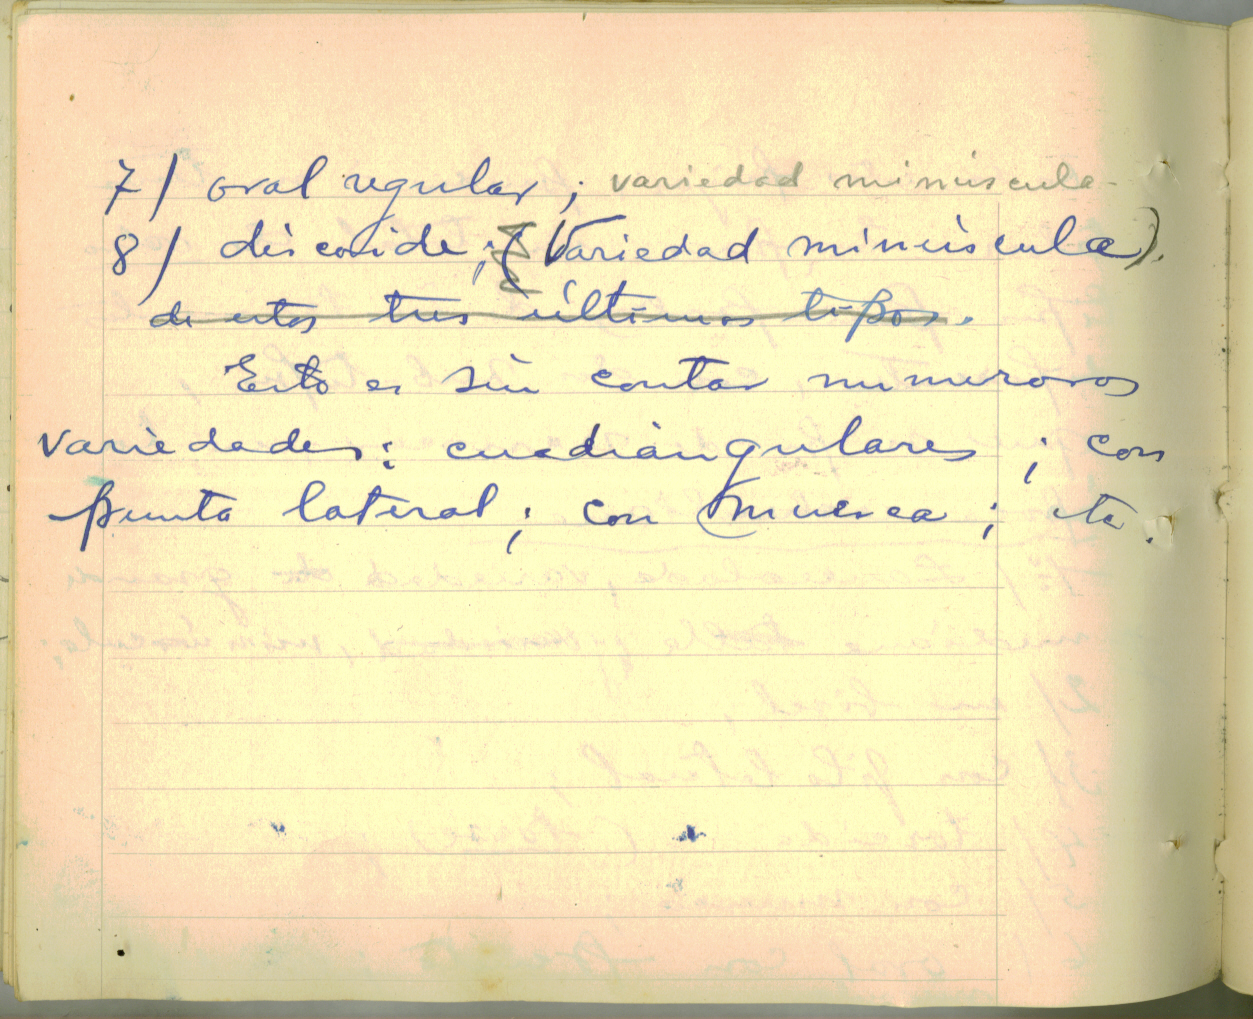 7/ oval regular; variedad minúscula
8/ discoide; (Variedad minúscula).
de estos tres últimos tipos.
Esto es sin contar numerosos
variedades: cuadrángulares; con
punta lateral; con muesca; etc.